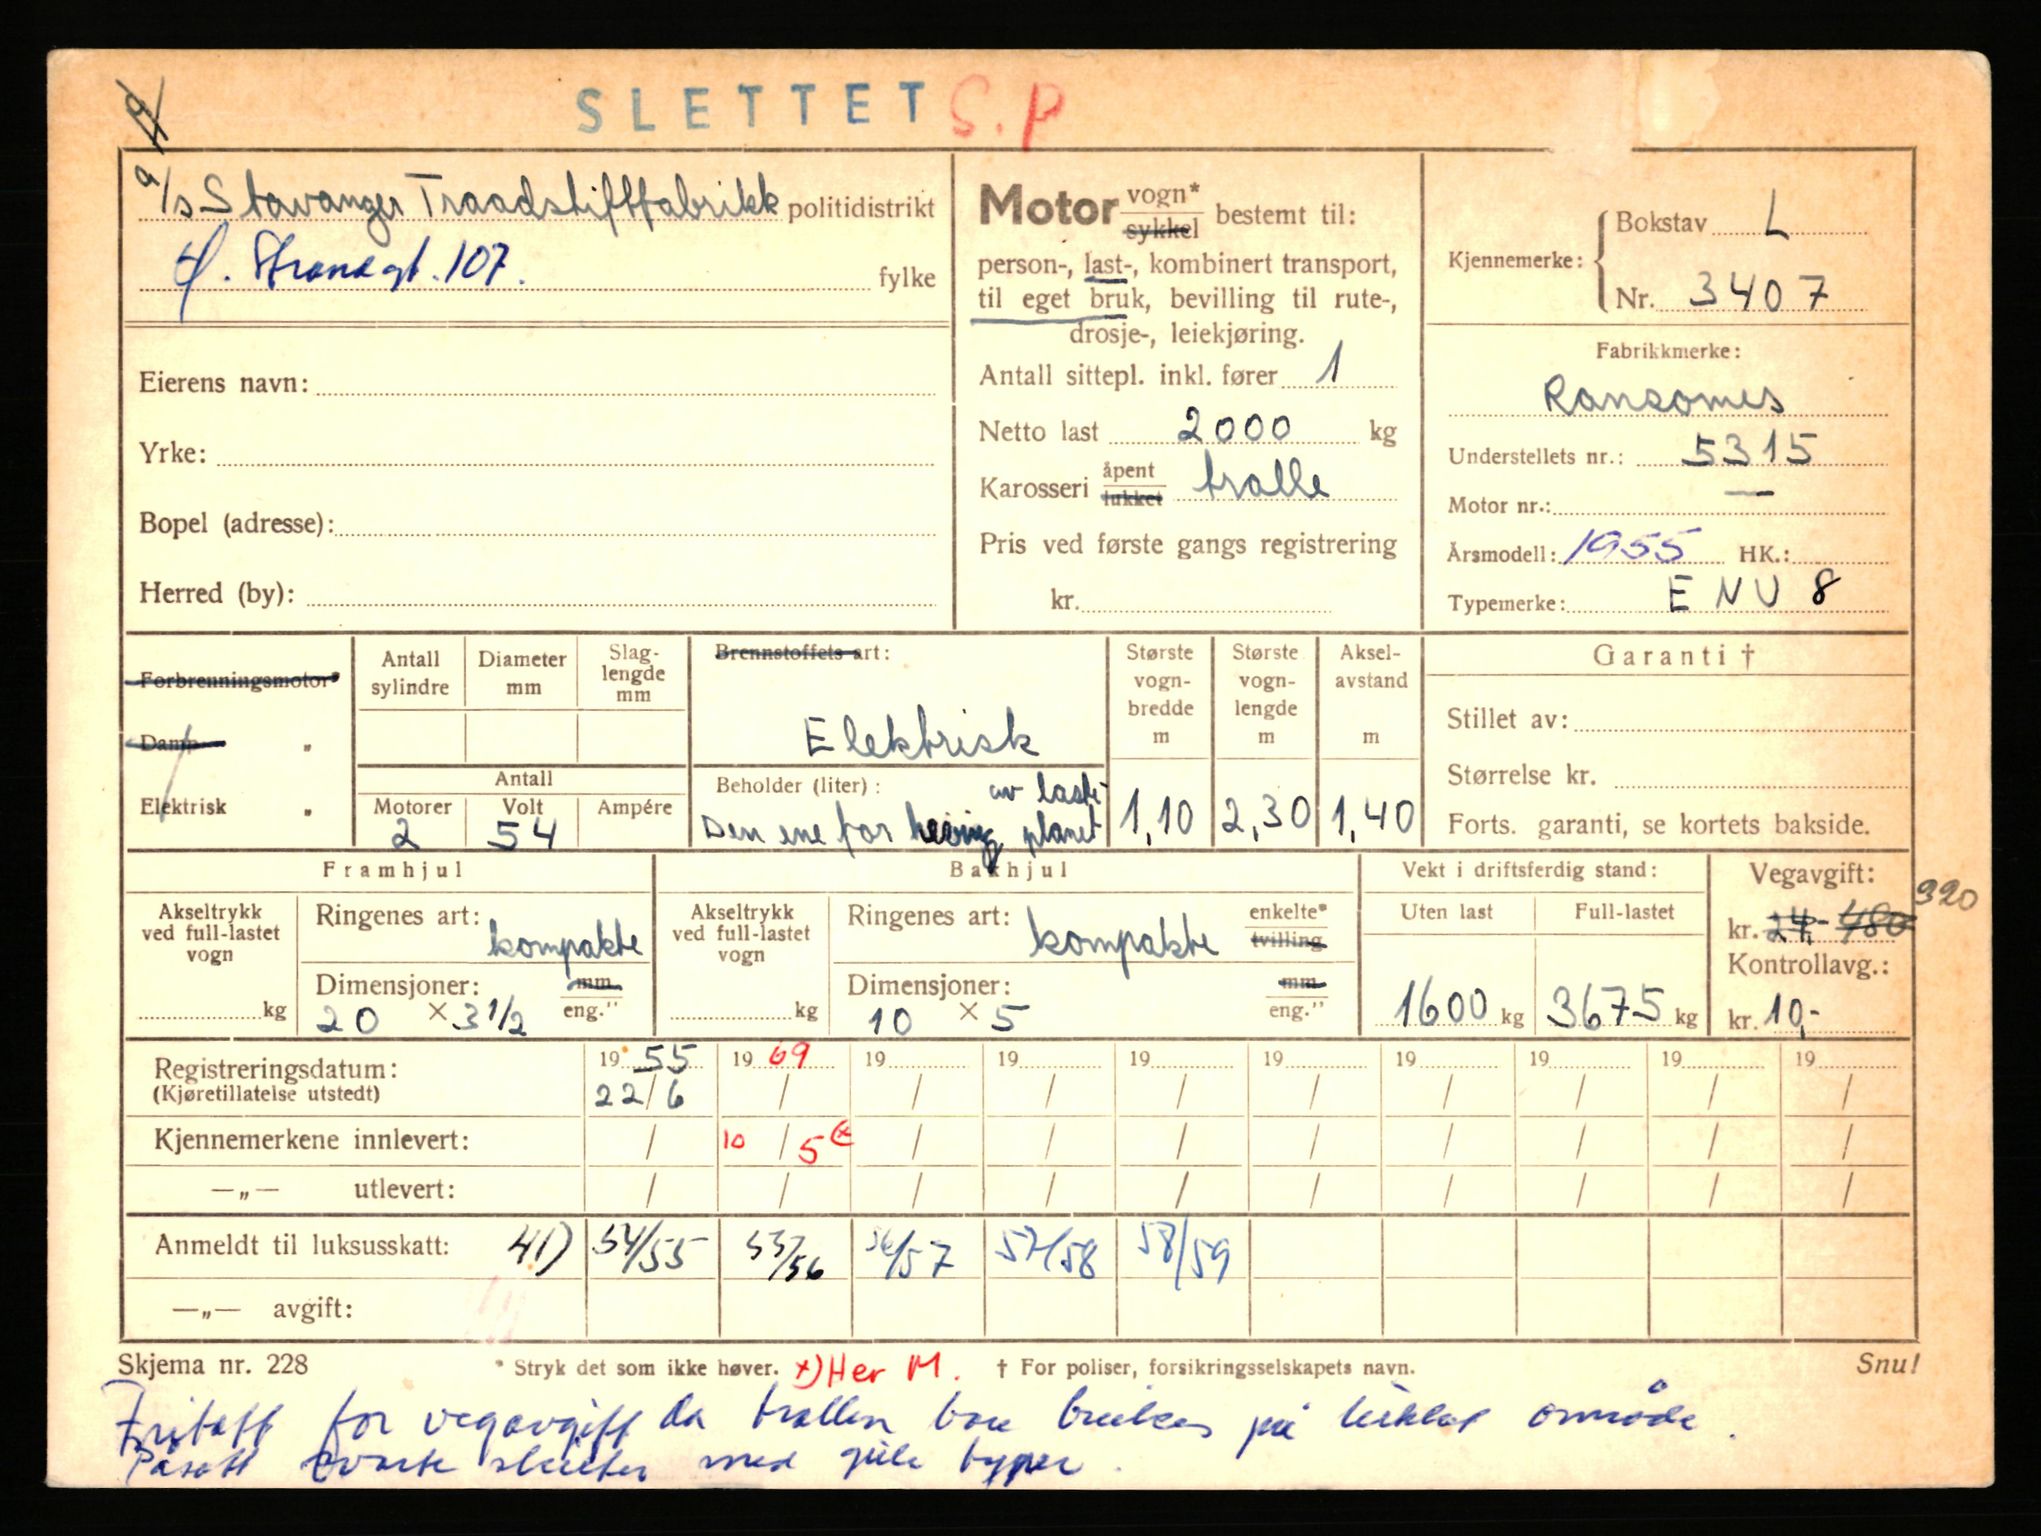 SLETTET S.P
a/s Stavanger Traadstiftfabrikk politidistrikt
Ø. Strandgt. 107. fylke
Eierens navn:
Yrke:
Bopel (adresse):
Herred (by):
Motor vogn* sykkel bestemt til:
person-, last-, kombinert transport,
til eget bruk, bevilling til rute-,
drosje-, leiekjøring.
Antall sittepl. inkl. fører 1
Netto last 2000 kg
Karosseri åpent lukket tralle
Pris ved første gangs registrering
kr.
Kjennemerke: Bokstav L
Nr. 3407
Fabrikkmerke:
Ransomes
Understellets nr.: 5315
Motor nr.: —
Årsmodell: 1955 HK.:
Typemerke: ENU 8
Forbrenningsmotor*
Damp "
Elektrisk "
Antall sylindre
Diameter mm
Slaglengde mm
Antall
Motorer Volt Ampére
2 54
Brennstoffets art:
Elektrisk
Beholder (liter): av laste-
Den ene for heving planet
Største vognbredde m
1,10
Største vognlengde m
2,30
Akselavstand m
1,40
Garanti †
Stillet av:
Størrelse kr.
Forts. garanti, se kortets bakside.
Framhjul
Akseltrykk ved full-lastet vogn
kg
Ringenes art: kompakte
Dimensjoner: mm eng."
20 × 3 1/2
Bakhjul
Akseltrykk ved full-lastet vogn
kg
Ringenes art: kompakte enkelte* tvilling
Dimensjoner: mm eng."
10 × 5
Vekt i driftsferdig stand:
Uten last Full-lastet
1600 kg 3675 kg
Vegavgift:
kr. 24,- 480 320
Kontrollavg.:
kr. 10,-
Registreringsdatum: 19 55 19 69 19 19 19 19 19 19 19 19
(Kjøretillatelse utstedt) 22/6 / / / / / / / / /
Kjennemerkene innlevert: / 10/5 x) / / / / / / / /
—„— utlevert: / / / / / / / / / /
Anmeldt til luksusskatt: 41) 54/55 55/56 56/57 57/58 58/59
—„— avgift:
Skjema nr. 228 * Stryk det som ikke høver. x) Her M. † For poliser, forsikringsselskapets navn. Snu!
Fritatt for vegavgift da trallen bare brukes på lukket område.
Påsatt svarte skilter med gule typer.